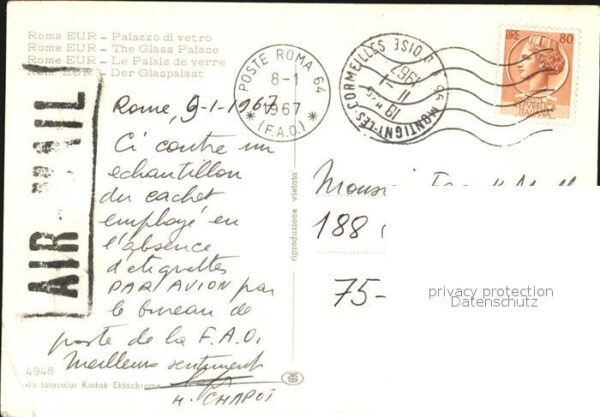 Rome EUR – Palazzo di vetro
Rome EUR – The Glass Palace
Rome EUR – Le Palais de verre
Rome EUR – Der Glaspalast
AIR MAIL
POSTE ROMA 64
8-1
1967
(F.A.O.)
95 MONTIGNY-LES-CORMEILLES OISE
18 H
11-1
1967
LIRE 80
REPUBBLICA
ITALIANA
Rome, 9-1-1967
Ci contre un
echantillon
du cachet
employé en
l'absence
d'etiquettes
PAR AVION par
le bureau de
poste de la F.A.O.
Meilleurs sentiments
H. CHAPOT
riproduzione vietata
188
75-
privacy protection
Datenschutz
4948
da fotocolor Kodak Ektachrome